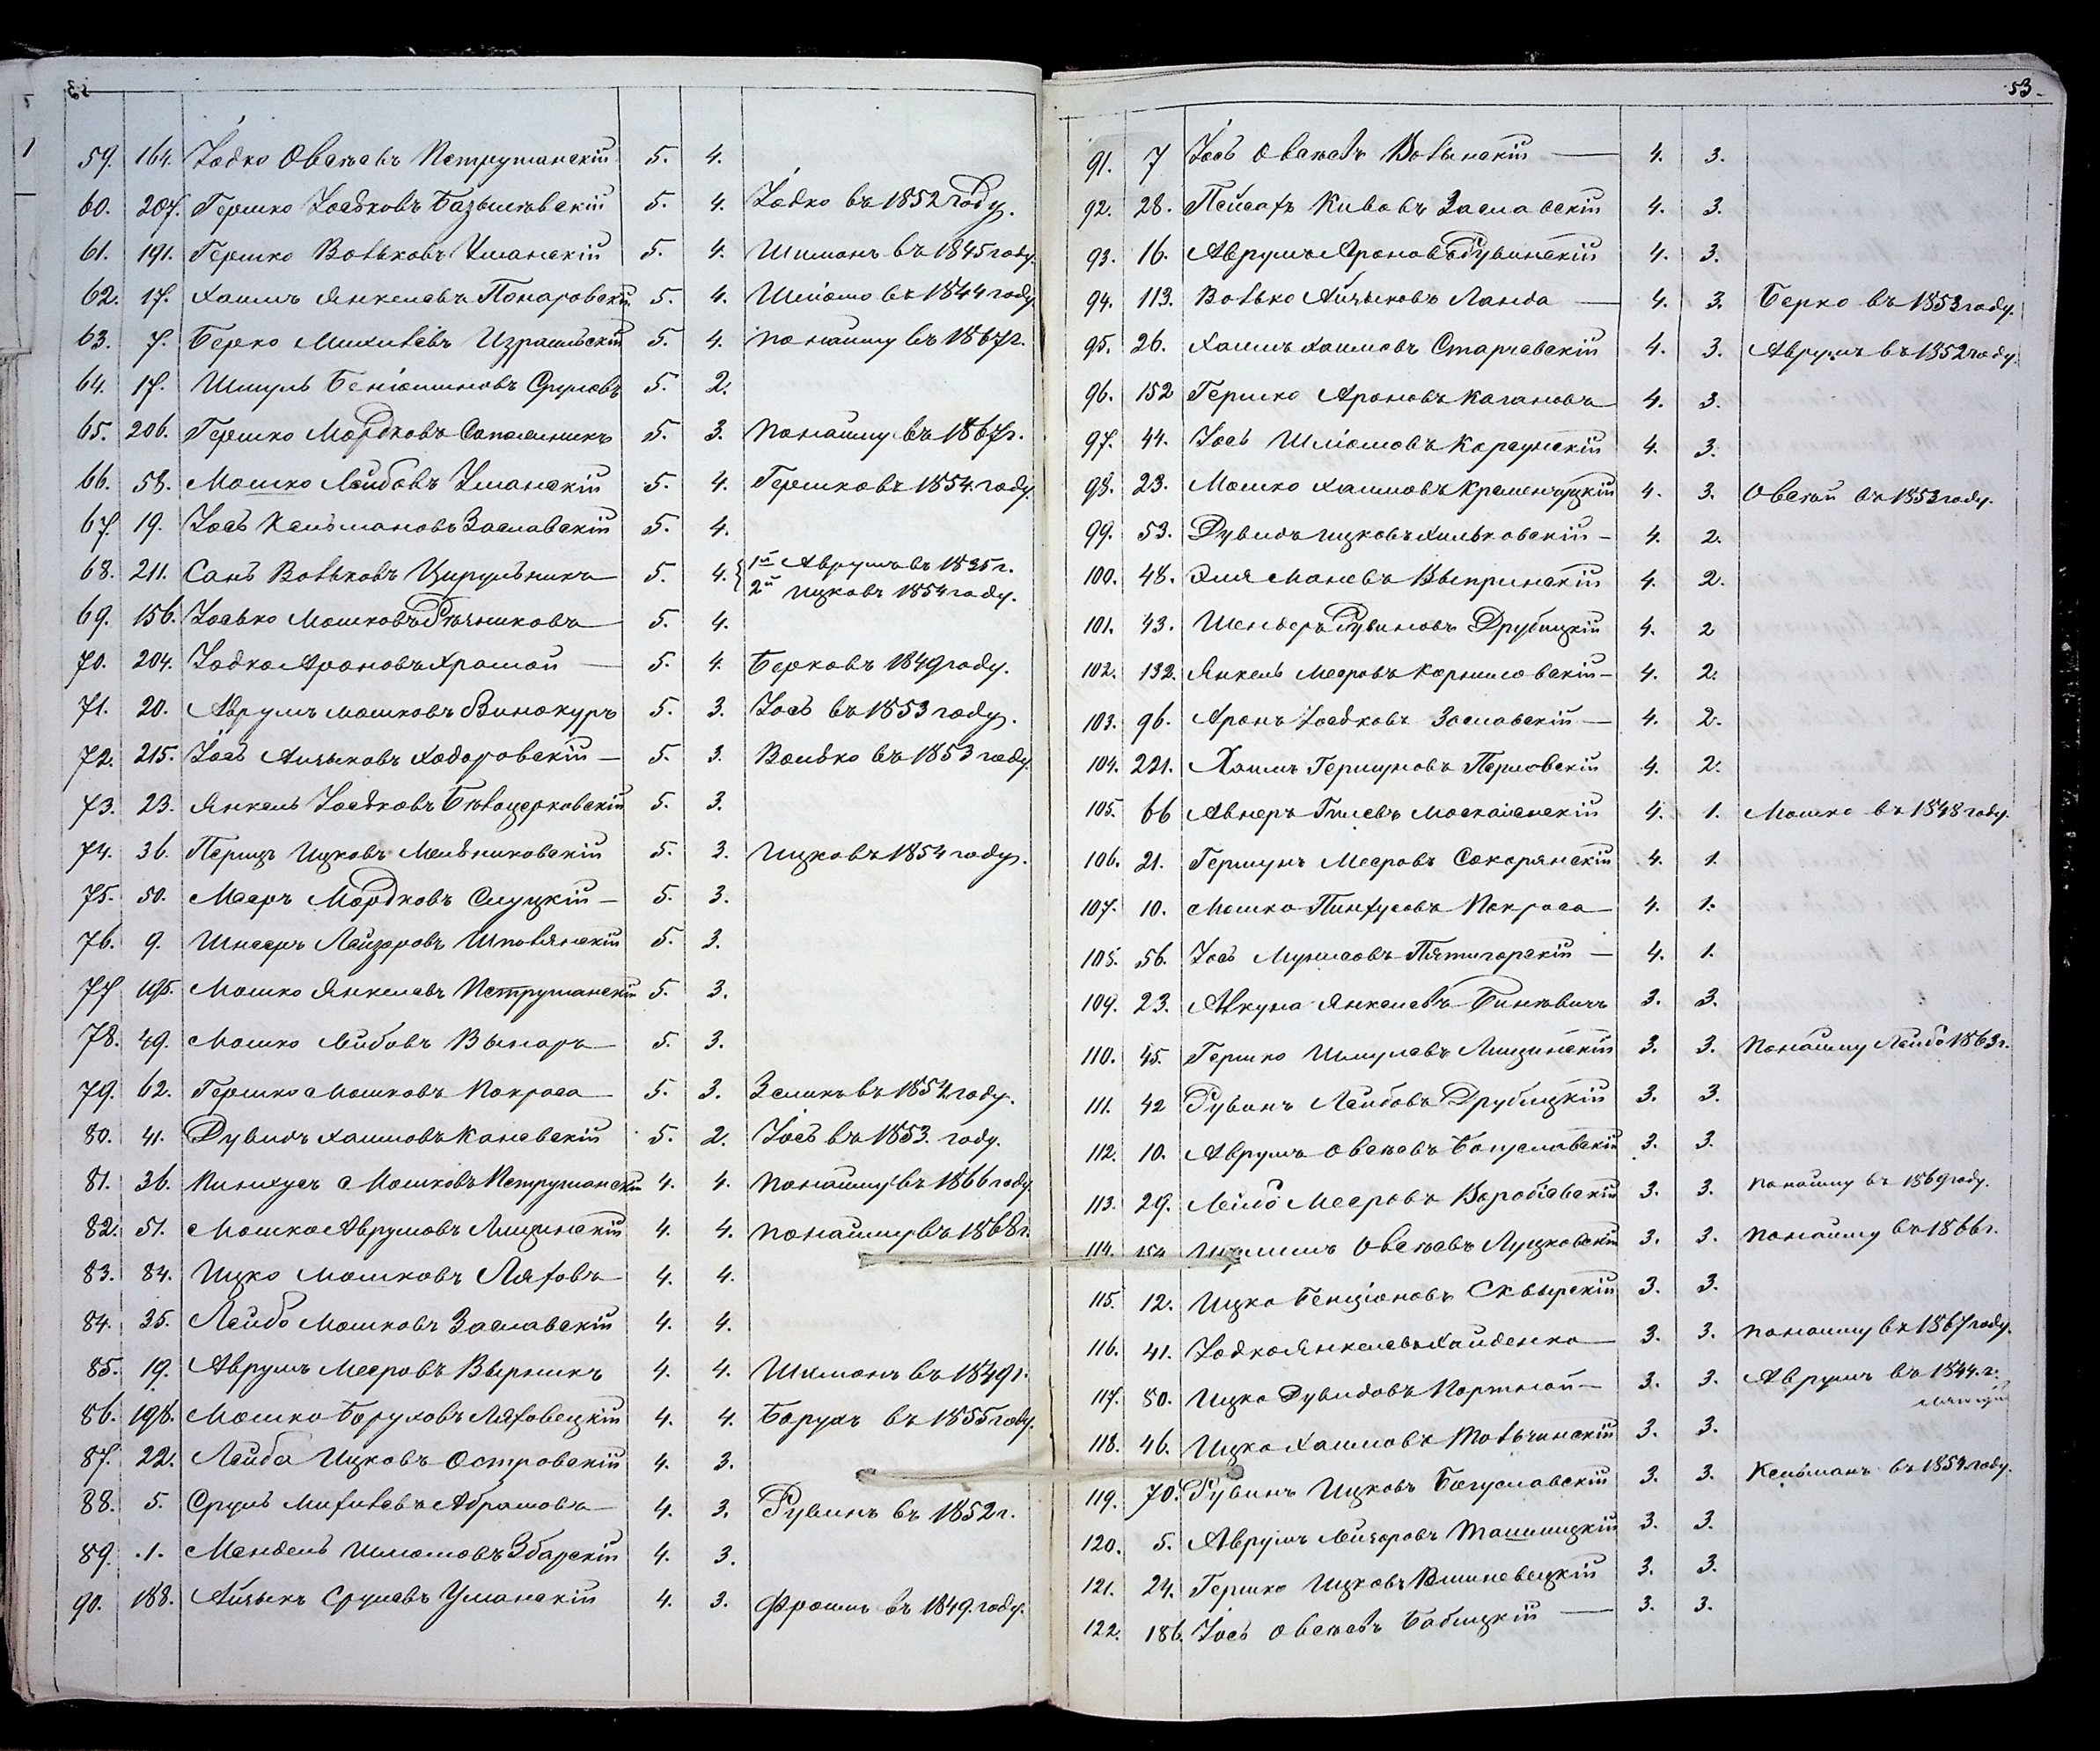 59. 164. Іодко Овсѣевъ Петрушанскій 5. 4.
60. 207. Гершко Іоськовъ Базылѣвскій 5. 4. Іодко въ 1852 году.
61. 191. Гершко Вольковъ Уманскій 5. 4. Шимонъ въ 1845 году.
62. 17. Хаимъ Янкелевъ Понаровскій 5. 4. Шліомо въ 1844 году
63. 7. Берко Михилевъ Израильскій 5. 4. по найму въ 1867 г.
64. 17. Шмуль Беніоминовъ Срулевъ 5. 2.
65. 206. Гершко Мордковъ Сапожникъ 5. 3. по найму въ 1867 г.
66. 58. Мошко Лейбовъ Уманскій 5. 4. Гершко въ 1854 году
67. 19. Іось Кельмановъ Заславскій 5. 4.
68. 211. Санъ Вольковъ Цирульникъ 5. 4. 1й Аврумъ въ 1835 г.
2й Ицко въ 1854 году.
69. 156. Іосько Мошковъ Рѣзниковъ 5. 4.
70. 204. Іодко Ароновъ Хромой 5. 4. Берко въ 1849 году.
71. 20. Аврумъ Мошковъ Винокуръ 5. 3. Іось въ 1853 году.
72. 215. Іось Айзыковъ Ходоровскій 5. 3. Волько въ 1853 году.
73. 23. Янкель Іоськовъ Бѣлоцерковскій 5. 3.
74. 36. Перецъ Ицковъ Мельниковскій 5. 3. Ицко въ 1854 году.
75. 50. Мееръ Мордковъ Слуцкій 5. 3.
76. 9. Шнееръ Лейзоровъ Шполянскій 5. 3.
77 195. Мошко Янкелевъ Петрушанскій 5. 3.
78. 49. Мошко Лейбовъ Вынаръ 5. 3.
79. 62. Гершко Мошковъ Покраса 5. 3. Зелигъ въ 1854 году.
80. 41. Дувидъ Хаимовъ Каневскій 5. 2. Іось въ 1853 году.
81. 36. Пинхусъ Мошковъ Петрушанскій 4. 4. по найму въ 1866 году
82. 51. Мошко Аврумовъ Лищинскій 4. 4. по найму въ 1868 г.
83. 84. Ицко Мошковъ Ляховъ 4. 4.
84. 35. Лейба Мошковъ Заславскій 4. 4.
85. 19. Аврумъ Мееровъ Вырникъ 4. 4. Шимонъ въ 1849 г.
86. 198. Мошко Боруховъ Ляховецкій 4. 4. Борухъ въ 1855 году.
87. 22. Лейба Ицковъ Островскій 4. 3.
88. 5. Сруль Михилевъ Абрамовъ 4. 3. Рувинъ въ 1852 г.
89. 1. Мендель Шлюмовъ Збарскій 4. 3.
90. 188. Айзыкъ Срулевъ Уманскій 4. 3. Фроимъ въ 1849 году.
53.
91. 7 Іось Овсѣевъ Волынскій 4. 3.
92. 28. Пейсахъ Кивовъ Заславскій 4. 3.
93. 16. Аврумъ Ароновъ Дувинскій 4. 3.
94. 113. Волько Айзыковъ Ланда 4. 3. Берко въ 1853 году.
95. 26. Хаимъ Хаимовъ Старчевскій 4. 3. Аврумъ въ 1852 году
96. 152 Гершко Ароновъ Кагановъ 4. 3.
97. 44. Іось Шліомовъ Корсунскій 4. 3.
98. 23. Мошко Хаимовъ Кременчуцкій 4. 3. Овсѣй въ 1853 году.
99. 53. Дувидъ Ицковъ Хильковскій 4. 2.
100. 48. Эля Маневъ Выпринскій 4. 2.
101. 43. Шендеръ Рувиновъ Друбицкій 4. 2
102. 132. Янкель Мееровъ Корниловскій 4. 2.
103. 96. Аронъ Іоськовъ Заславскій 4. 2.
104. 221. Хаимъ Гершуновъ Перловскій 4. 2.
105. 66 Авнеръ Гилевъ Москаленскій 4. 1. Мошко въ 1848 году.
106. 21. Гершунъ Мееровъ Сокорянскій 4. 1.
107. 10. Мошко Пинхусовъ Покраса 4. 1.
108. 56. Іось Мунисовъ Пятигорскій 4. 1.
109. 23. Аккуна Янкелевъ Бинѣвичъ 3. 3.
110. 45. Гершко Шмулевъ Лищинскій 3. 3. По найму Лейба 1863 г.
111. 42 Рувинъ Лейбовъ Друбицкій 3. 3.
112. 10. Аврумъ Овсѣевъ Богуславскій 3. 3.
113. 29. Лейба Мееровъ Воробіевскій 3. 3. по найму въ 1869 году.
114. 154 Овсѣевъ Луцковскій 3. 3. по найму въ 1866 г.
115. 12. Ицко Бенціоновъ Сквырскій 3. 3.
116. 41. Іодко Янкелевъ Хайденко 3. 3. по найму въ 1867 году.
117. 80. Ицко Дувидовъ Портной 3. 3. Аврумъ въ 1844 г.
118. 46. Ицко Хаимовъ Тольчинскій 3. 3.
119. 70. Рувинъ Ицковъ Богуславскій 3. 3. Кельманъ въ 1854 году.
120. 5. Аврумъ Лейзоровъ Ташлицкій 3. 3.
121. 24. Гершко Ицковъ Вишневецкій 3. 3.
122. 186. Іось Овсѣевъ Бабицкій 3. 3.